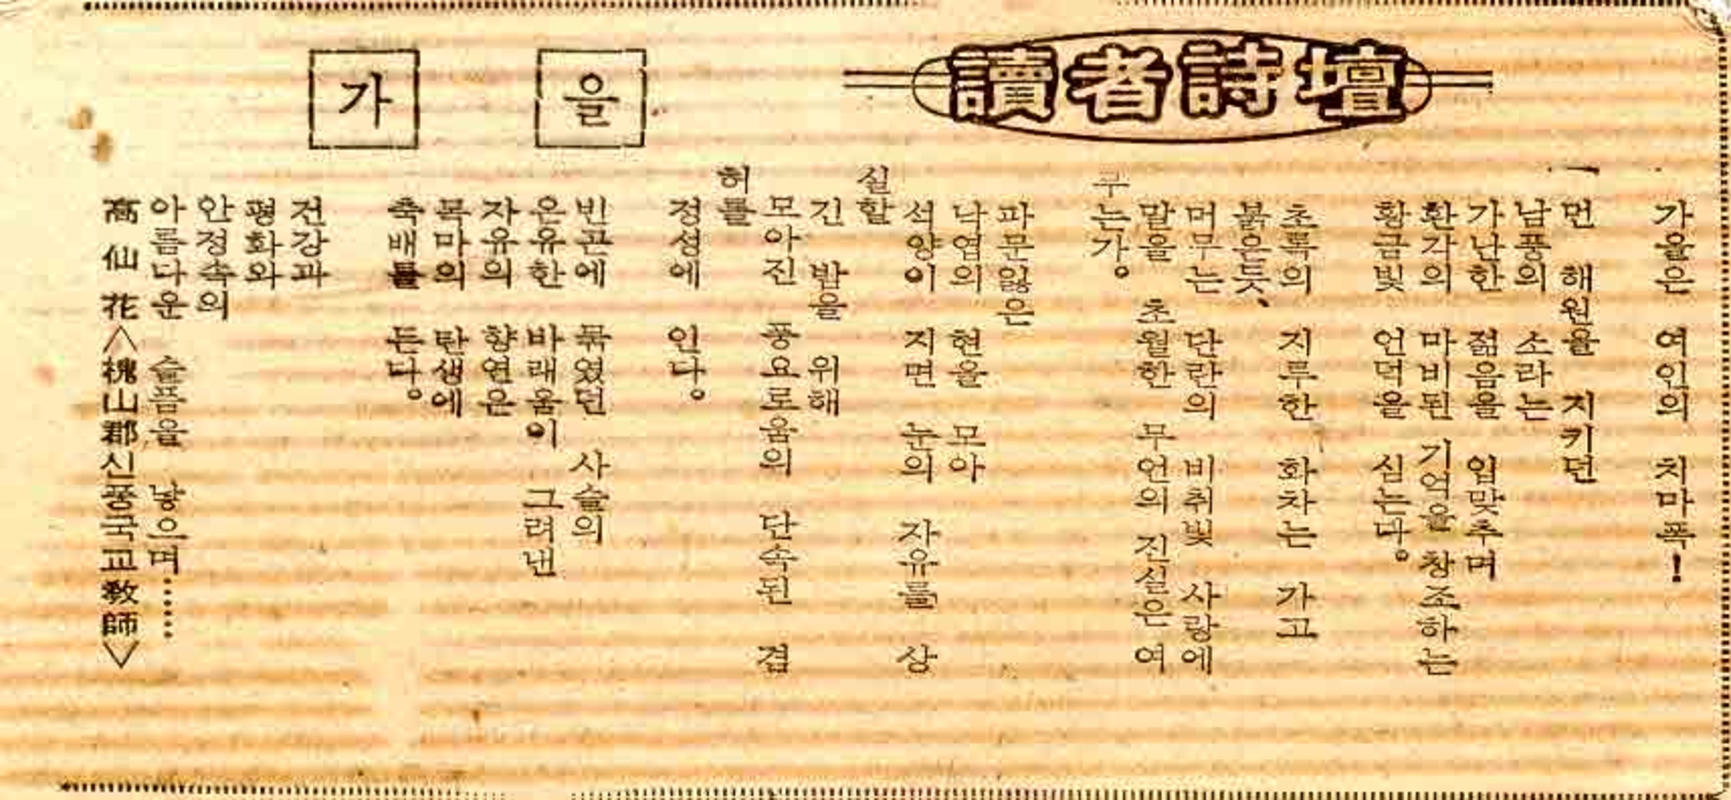 讀者詩壇
가을
가을은 여인의 치마폭!
먼 해원을 지키던
남풍의 소라는
가난한 젊음을 입맞추며
환각의 마비된 기억을 창조하는
황금빛 언덕을 심는다。
초록의 지루한 화차는 가고
붉은듯、
머무는 단란의 비취빛 사랑에
말을 초월한 무언의 진실은 여
무는가。
파문잃은
낙엽의 현을 모아
석양이 지면 눈의 자유를 상
실할
긴 밤을 위해
모아진 풍요로움의 단속된 겸
허를
정성에 인다。
빈곤에 묶였던 사슬의
은유한 바래움이 그려낸
자유의 향연은
목마의 탄생에
축배를 든다。
전강과
평화와
안정속의
아름다운 슬픔을 낳으며……
高仙花〈槐山郡신풍국교敎師〉